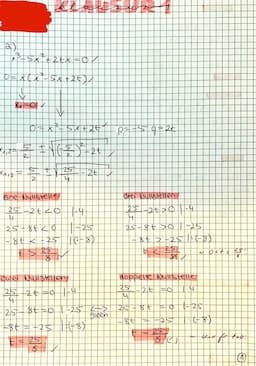 KLAUSUR 1
a)
x³-5x²+2tx=0 ✓
0=x(x²-5x+2t) ✓
x₁=0 ✓
0=x²-5x+2t ✓ p=-5 q=2t
x₁,₂=5/2 ± √((-5/2)²-2t
x₁,₂=5/2 ± √(25/4-2t ✓
eine Nullstelle
25/4-2t<0 |·4
25-8t<0 |-25
-8t<-25 |:(-8)
t > 25/8 ✓
drei Nullstellen
25/4-2t>0 |·4
25-8t>0 |-25
-8t>-25 |:(-8)
t < 25/8
zwei Nullstellen
25/4-2t=0 |·4
25-8t=0 |-25
-8t=-25 |:(-8)
t=25/8
doppelte Nullstelle
25/4-2t=0 |·4
25-8t=0 |-25
-8t=-25 |:(-8)
t=25/8